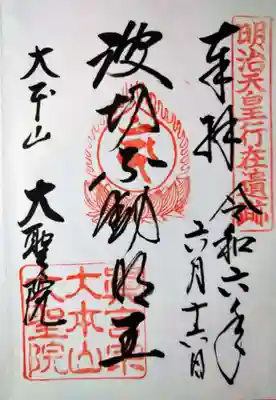 明治天皇行在遺跡
奉拝
令和六年
六月十六日
波切不動明王
大本山
大聖院
大本山
大聖院